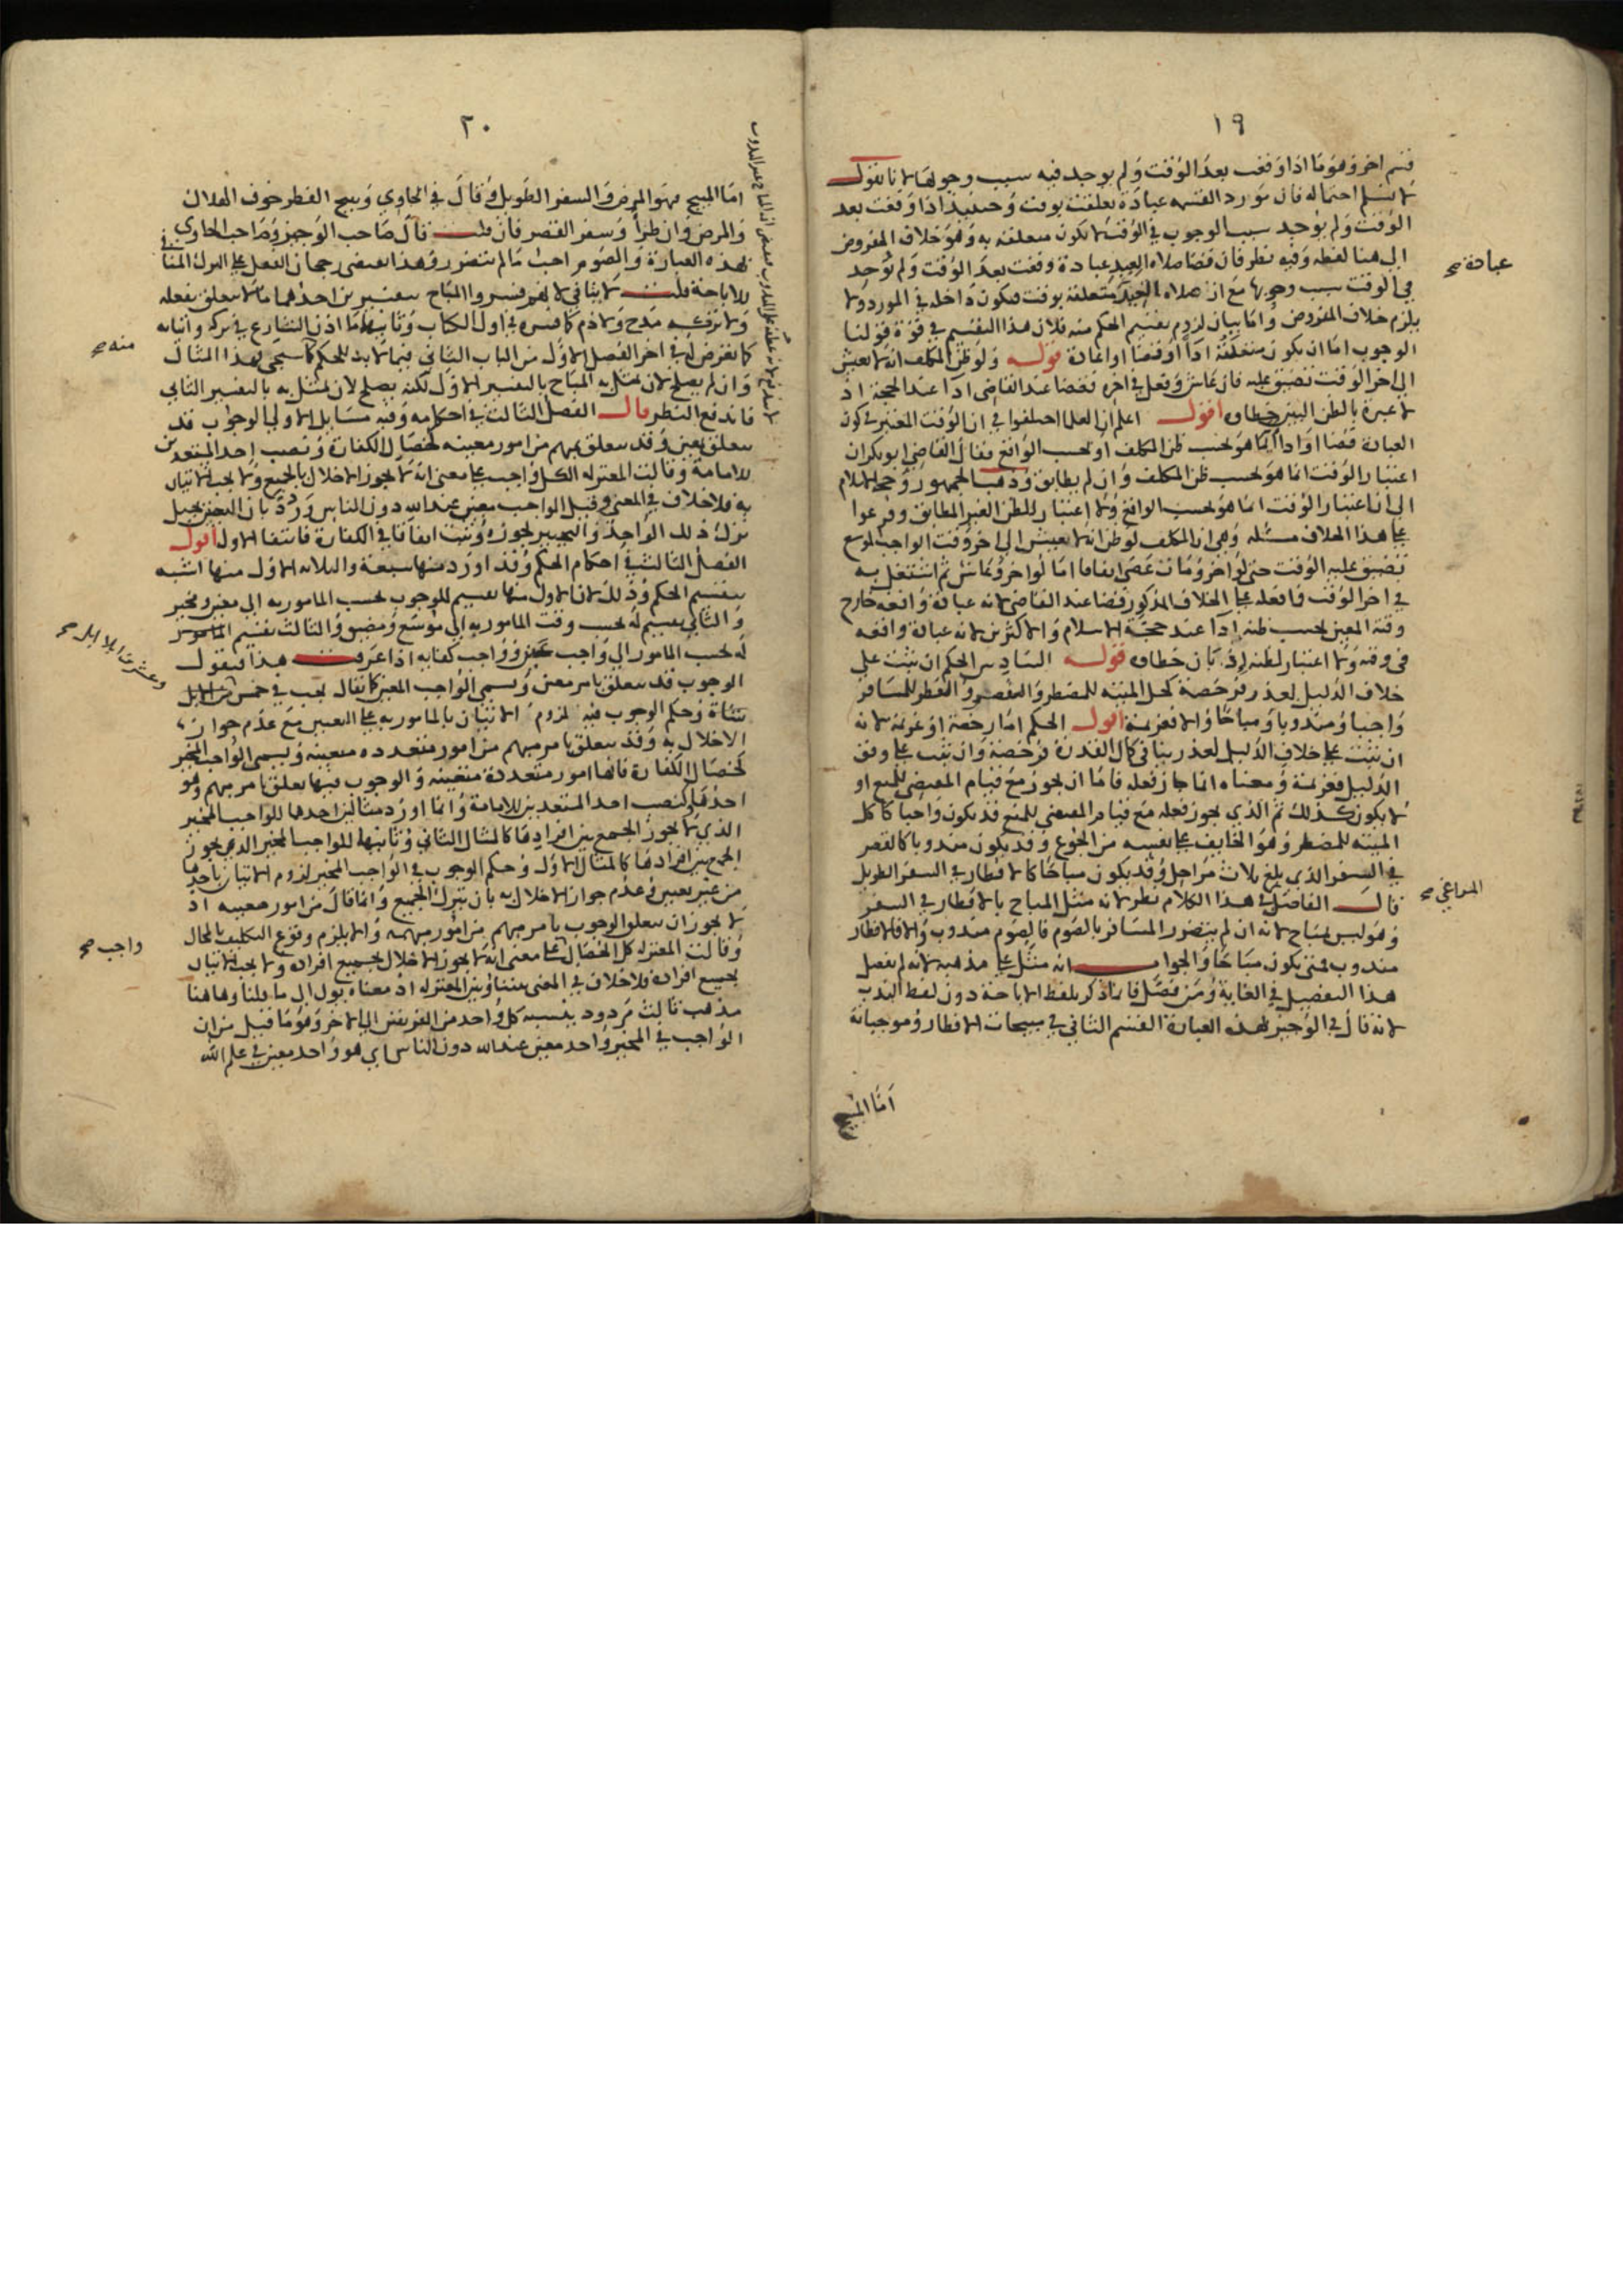 ١٩
قسم اخر وهو ما اذا وقعت بعد الوقت ولم يوجد فيه سبب وجوبها لانا نقول
لا نسلم احتماله فان مورد القسمة عبادة تعلقت بوقت وحينئذ اذا وقعت بعد
الوقت ولم يوجد سبب الوجوب في الوقت لا تكون متعلقة به وهو خلاف المفروض
الى هنا لفظه وفيه نظر فان قضا صلاة العيد عبادة وقعت بعد الوقت ولم يوجد
في الوقت سبب وجوبها مع ان صلاة العيد متعلقة بوقت فتكون داخلة في المورد ولا
يلزم خلاف المفروض واما بيان لزوم تقسيم الحكم منه فلان هذا التقسيم في قوة قولنا
الوجوب اما ان يكون متعلقه ادآ او قضا او اعادة قوله ولو ظن المكلف انه لا يعيش
الى اخر الوقت تضيق عليه فان عاش وفعل في اخره فقضا عند القاضي ادآ عند الحجة اذ
لا عبرة بالظن البين خطاوه اقول اعلم ان العلما اختلفوا في ان الوقت المعتبر في كون
العبادة قضا او ادآ انما هو بحسب ظن المكلف او بحسب الواقع فقال القاضي ابو بكر ان
اعتبار الوقت انما هو بحسب ظن المكلف وان لم يطابق وذهب الجمهور وحجة الاسلام
الى ان اعتبار الوقت انما هو بحسب الواقع ولا اعتبار للظن الغير المطابق وفرعوا
على هذا الخلاف مسئلة وهي ان المكلف لو ظن انه لا يعيش الى اخر وقت الواجب الموسع
تضيق عليه الوقت حتى لو اخر ومات عصى اتفاقا اما لو اخر وعاش ثم اشتغل به
في اخر الوقت ففعله على الخلاف المذكور قضا عند القاضي لانه عبادة واقعة خارج
وقته المعين بحسب ظنه ادآ عند حجة الاسلام والاكثرين لانه عبادة واقعة
في وقته ولا اعتبار لظنه اذ بان خطاوه قوله السادس الحكم ان ثبت على
خلاف الدليل لعذر فرخصة كحل الميتة للمضطر والقصر والفطر للمسافر
واجبا ومندوبا ومباحا والا فعزيمة اقول الحكم اما رخصة او عزيمة لانه
ان ثبت على خلاف الدليل لعذر ينافي كمال القدرة فرخصة وان ثبت على وفق
الدليل فعزيمة ومعناه انما جاز فعله فاما ان يجوز مع قيام المقتضي للمنع او
لا يكون كذلك ثم الذي يجوز فعله مع قيام المقتضي للمنع قد يكون واجبا كاكل
الميتة للمضطر وهو الخايف على نفسه من الجوع وقد يكون مندوبا كالقصر
في السفر الذي بلغ ثلاث مراحل وقد يكون مباحا كالافطار في السفر الطويل
قال الفاضل في هذا الكلام نظر لانه مثل المباح بالافطار في السفر
وهو ليس بمباح لانه ان لم يتضرر المسافر بالصوم فالصوم مندوب والا فالافطار
مندوب فمتى يكون مباحا والجواب انه مثل على مذهبه لانه لم يفصل
هذا التفصيل في الغاية ومن فصل فانما ذكر بلفظ الاباحة دون لفظ الندب
لانه قال في الوجيز بهذه العبارة القسم الثاني في مبيحات الافطار وموجباته
اما المبيح
عبادة صح
المراغي صح
٢٠
اما المبيح فهو المرض والسفر الطويل وقال في الحاوي ويبيح الفطر خوف الهلاك
والمرض وان طرأ وسفر القصر فان قلت قال صاحب الوجيز وصاحب الحاوي
بهذه العبارة والصوم احب ما لم يتضرر وهذا يقتضي رجحان الفعل على الترك المنافي
للاباحة قلت لا ينافي لانهم فسروا المباح بتفسيرين احدهما ما لا يتعلق بفعله
ولا تركه مدح ولا ذم كما فسره في اول الكتاب وثانيهما ما اذن الشارع في تركه واتيانه
كما تعرض له في اخر الفصل الاول من الباب الثاني فيما لا بد للحكم كما سيجي فهذا المثال
وان لم يصلح لان يمثل به المباح بالتفسير الاول لكنه يصلح لان يمثل به بالتفسير الثاني
فاندفع النظر قال الفصل الثالث في احكامه وفيه مسايل الاولى الوجوب قد
يتعلق بمعين وقد يتعلق بمبهم من امور معينة كخصال الكفارة ونصب احد المستعدين
للامامة وقالت المعتزلة الكل واجب على معنى انه لا يجوز الاخلال بالجميع ولا يجب الاتيان
به فلا خلاف في المعنى وقيل الواجب معين عند الله دون الناس ورد بان التعيين يحيل
ترك ذلك الواحد والتخيير يجوزه وثبت اتفاقا في الكفارة فانتفا الاول اقول
الفصل الثالث في احكام الحكم وقد اورد منها سبعة والثلاثة الاول منها اشبه
بتقسيم الحكم وذلك لان الاول منها تقسيم للوجوب بحسب المامور به الى معين ومخير
والثاني تقسيم له بحسب وقت المامور به الى موسع ومضيق والثالث تقسيم
له بحسب المامور الى واجب عين وواجب كفاية اذا عرفت هذا فنقول
الوجوب قد يتعلق بامر معين ويسمى الواجب المعين كما يقال يجب في خمس من الابل
شاة وحكم الوجوب فيه لزوم الاتيان بالمامور به على التعيين مع عدم جواز
الاخلال به وقد يتعلق بامر مبهم من امور متعددة معينة ويسمى الواجب المخير
كخصال الكفارة فانها امور متعددة متعينة والوجوب فيها تعلق بامر مبهم وهو
احدها وكنصب احد المستعدين للامامة وانما اورد مثالين احدهما للواجب المخير
الذي لا يجوز الجمع بين افراده كالمثال الثاني وثانيها للواجب المخير الذي يجوز
الجمع بين افرادها كالمثال الاول وحكم الوجوب في الواجب المخير لزوم الاتيان باحدها
من غير تعيين وعدم جواز الاخلال به بان يترك الجميع وانما قال من امور معينة اذ
لا يجوز ان يتعلق الوجوب بامر مبهم من امور مبهمة والا يلزم وقوع التكليف بالمحال
وقالت المعتزلة كل الخصال على معنى انه لا يجوز الاخلال بجميع افراده ولا يجب الاتيان
بجميع افراده فلا خلاف في المعنى بيننا وبين المعتزلة اذ معناه يؤل الى ما قلنا وهاهنا
مذهب ثالث مردود ينسبه كل واحد من الفريقين الى الاخر وهو ما قيل من ان
الواجب في المخير واحد معين عند الله دون الناس اي هو واحد معين في علم الله
منه صح
وعشرين ابلا ابل صح
واجب صح